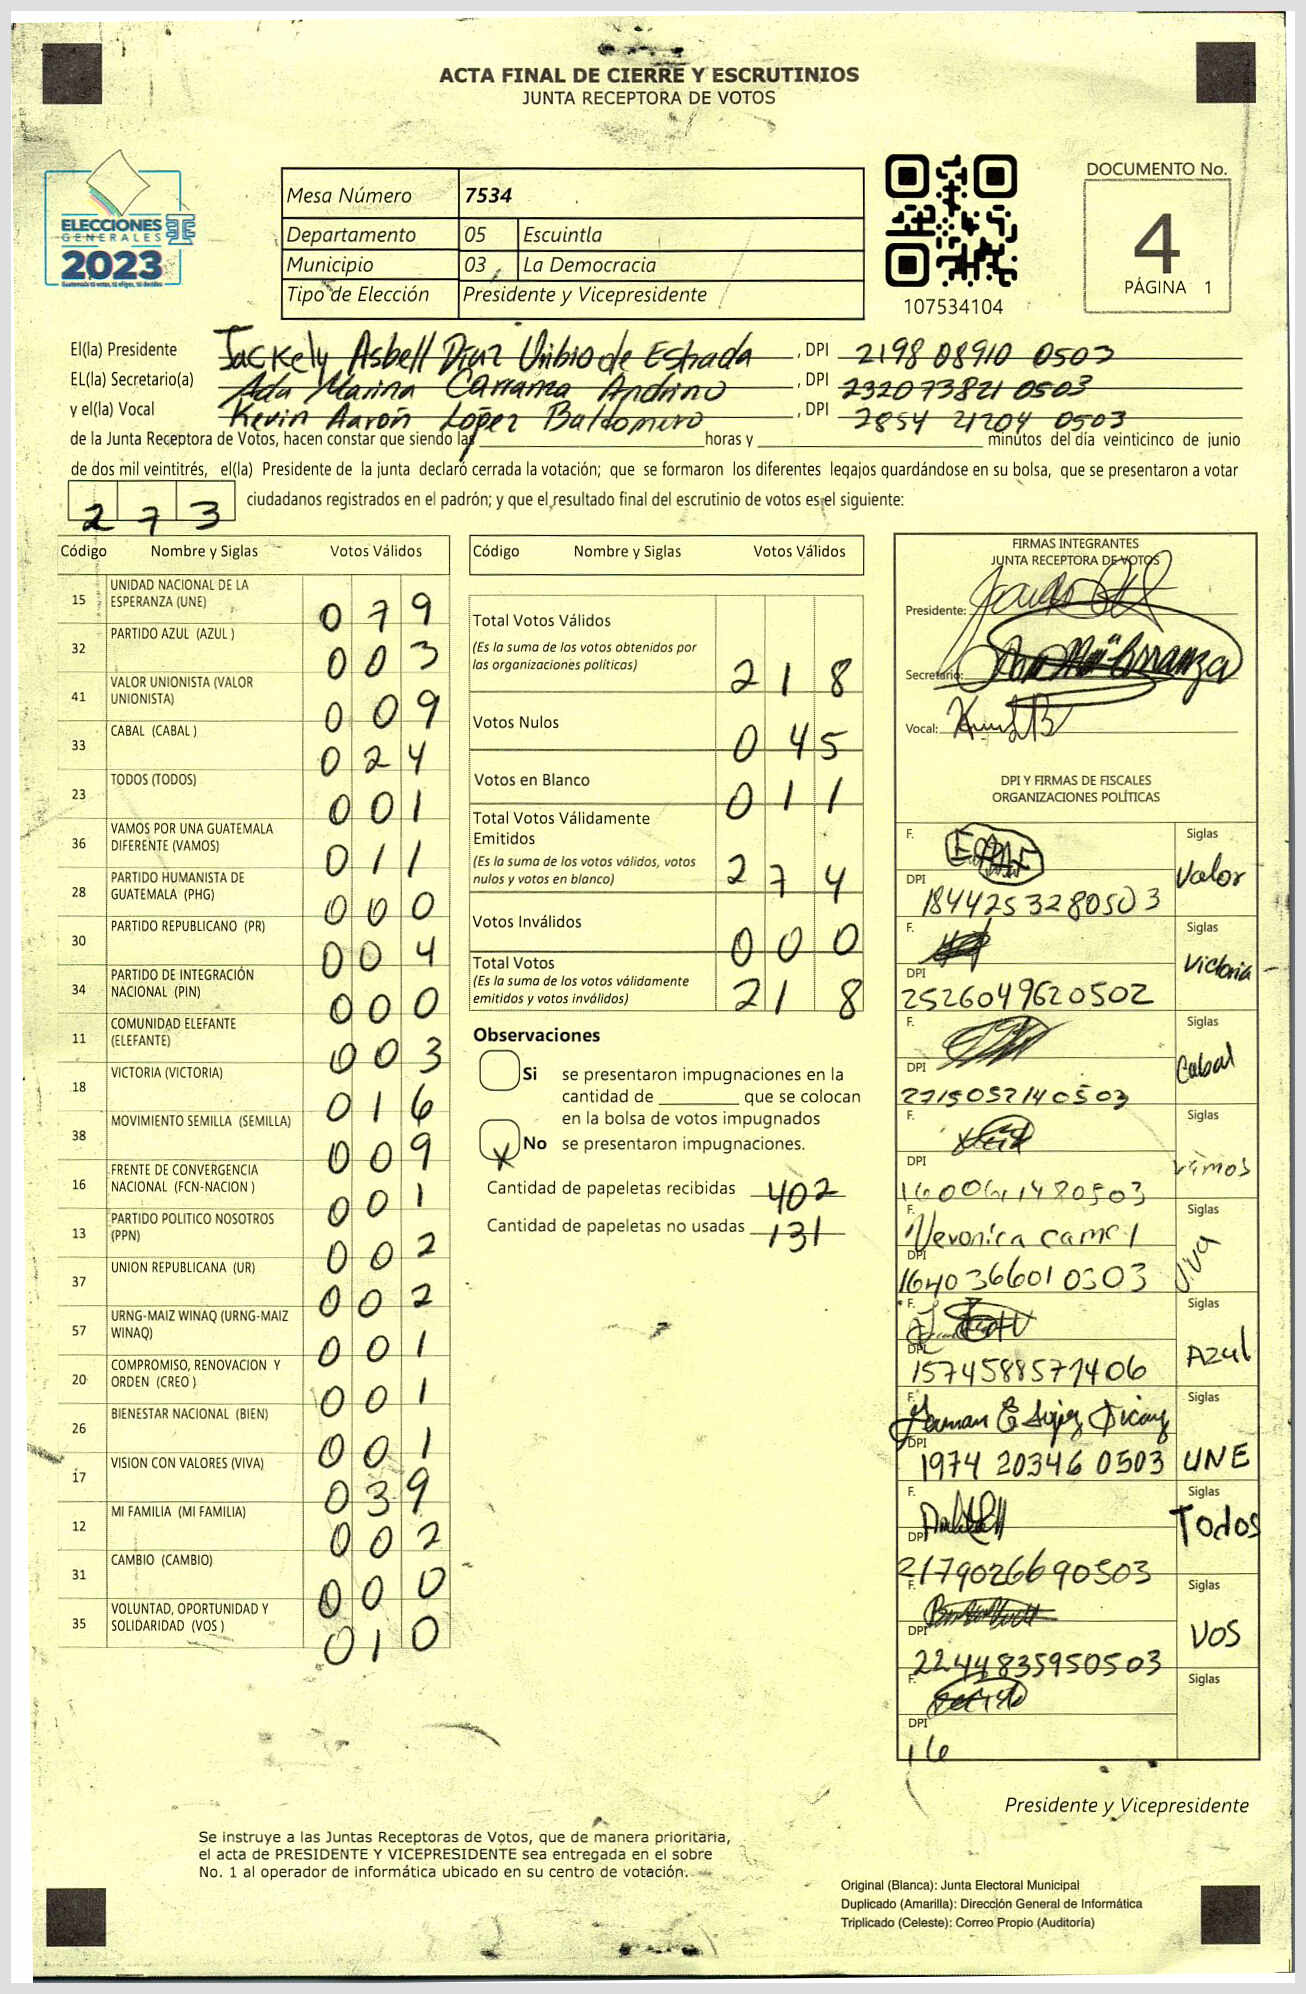 ACTA FINAL DE CIERRE Y ESCRUTINIOS
JUNTA RECEPTORA DE VOTOS
ELECCIONES
GENERALES
2023
Mesa Número 7534
Departamento 05 Escuintla
Municipio 03 La Democracia
Tipo de Elección Presidente y Vicepresidente
107534104
DOCUMENTO No.
4
PÁGINA 1
El(la) Presidente Jackely Asbell Díaz de Estrada, DPI 2198 08910 0503
EL(la) Secretario(a) Ada Marina Carranza Andrino, DPI 232073821 0503
y el(la) Vocal Kevin Aarón López Baldomero, DPI 2854 21204 0503
de la Junta Receptora de Votos, hacen constar que siendo las horas y minutos del día veinticinco de junio
de dos mil veintitrés, el(la) Presidente de la junta declaró cerrada la votación; que se formaron los diferentes legajos guardándose en su bolsa, que se presentaron a votar
273 ciudadanos registrados en el padrón; y que el resultado final del escrutinio de votos es el siguiente:
Código Nombre y Siglas Votos Válidos
15 UNIDAD NACIONAL DE LA ESPERANZA (UNE) 079
32 PARTIDO AZUL (AZUL ) 003
41 VALOR UNIONISTA (VALOR UNIONISTA) 009
33 CABAL (CABAL ) 024
23 TODOS (TODOS) 001
36 VAMOS POR UNA GUATEMALA DIFERENTE (VAMOS) 011
28 PARTIDO HUMANISTA DE GUATEMALA (PHG) 000
30 PARTIDO REPUBLICANO (PR) 004
34 PARTIDO DE INTEGRACIÓN NACIONAL (PIN) 000
11 COMUNIDAD ELEFANTE (ELEFANTE) 003
18 VICTORIA (VICTORIA) 016
38 MOVIMIENTO SEMILLA (SEMILLA) 009
16 FRENTE DE CONVERGENCIA NACIONAL (FCN-NACION ) 001
13 PARTIDO POLITICO NOSOTROS (PPN) 002
37 UNION REPUBLICANA (UR) 002
57 URNG-MAIZ WINAQ (URNG-MAIZ WINAQ) 001
20 COMPROMISO, RENOVACION Y ORDEN (CREO ) 001
26 BIENESTAR NACIONAL (BIEN) 001
17 VISION CON VALORES (VIVA) 039
12 MI FAMILIA (MI FAMILIA) 002
31 CAMBIO (CAMBIO) 000
35 VOLUNTAD, OPORTUNIDAD Y SOLIDARIDAD (VOS ) 010
Código Nombre y Siglas Votos Válidos
Total Votos Válidos
(Es la suma de los votos obtenidos por
las organizaciones políticas) 218
Votos Nulos 045
Votos en Blanco 011
Total Votos Válidamente
Emitidos
(Es la suma de los votos válidos, votos
nulos y votos en blanco) 274
Votos Inválidos 000
Total Votos
(Es la suma de los votos válidamente
emitidos y votos inválidos) 218
Observaciones
Si se presentaron impugnaciones en la
cantidad de que se colocan
en la bolsa de votos impugnados
X No se presentaron impugnaciones.
Cantidad de papeletas recibidas 402
Cantidad de papeletas no usadas 131
FIRMAS INTEGRANTES
JUNTA RECEPTORA DE VOTOS
Presidente:
Secretario:
Vocal:
DPI Y FIRMAS DE FISCALES
ORGANIZACIONES POLÍTICAS
F. Siglas
DPI 1844253280503 Valor
F. Siglas
DPI 2526049620502 Victoria
F. Siglas
DPI 2715052140503 Cabal
F. Siglas
DPI Vamos
F. Veronica Siglas
DPI 1640366010303 Viva
F. Siglas
DPI 1574588571406 Azul
F. Siglas
DPI 1974 20346 0503 UNE
F. Siglas
DPI 2179026690503 Todos
F. Siglas
DPI 2244835950503 VOS
F. Siglas
DPI 16
Presidente y Vicepresidente
Se instruye a las Juntas Receptoras de Votos, que de manera prioritaria,
el acta de PRESIDENTE Y VICEPRESIDENTE sea entregada en el sobre
No. 1 al operador de informática ubicado en su centro de votación.
Original (Blanca): Junta Electoral Municipal
Duplicado (Amarilla): Dirección General de Informática
Triplicado (Celeste): Correo Propio (Auditoría)